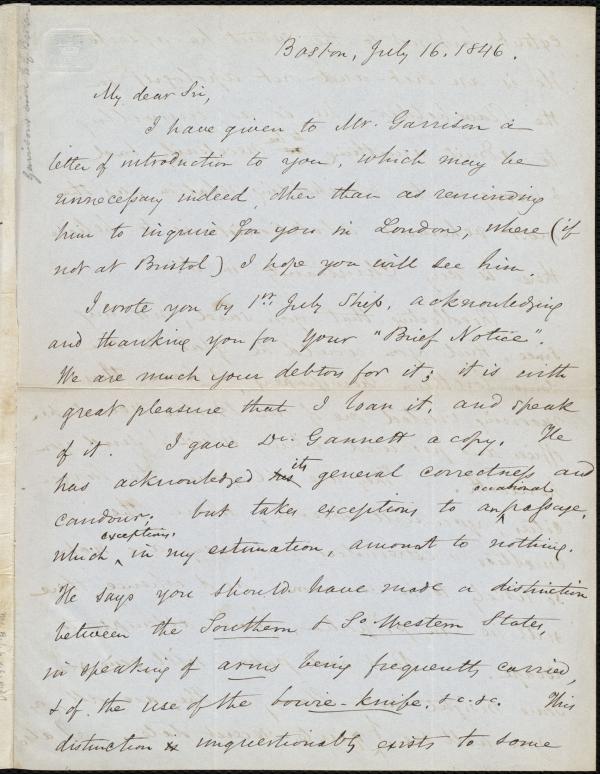 Boston, July 16. 1846.
My dear Sir,
I have given to Mr. Garrison a
letter of introduction to you, which may be
unnecessary indeed, other than as reminding
him to inquire for you in London, where (if
not at Bristol) I hope you will see him.
I wrote you by 1st July Ship, acknowledging
and thanking you for your "Brief Notice".
We are much your debtors for it; it is with
great pleasure that I loan it, and speak
of it. I gave Dr. Gannett a copy. He
has acknowledged its general correctness and
candour; but takes exceptions to an occasional passage,
which exceptions, in my estimation, amount to nothing.
He says you should have made a distinction
between the Southern & So Western States,
in speaking of arms being frequently carried,
& of the use of the bowie-knife, &c. &c. This
distinction unquestionably exists to some